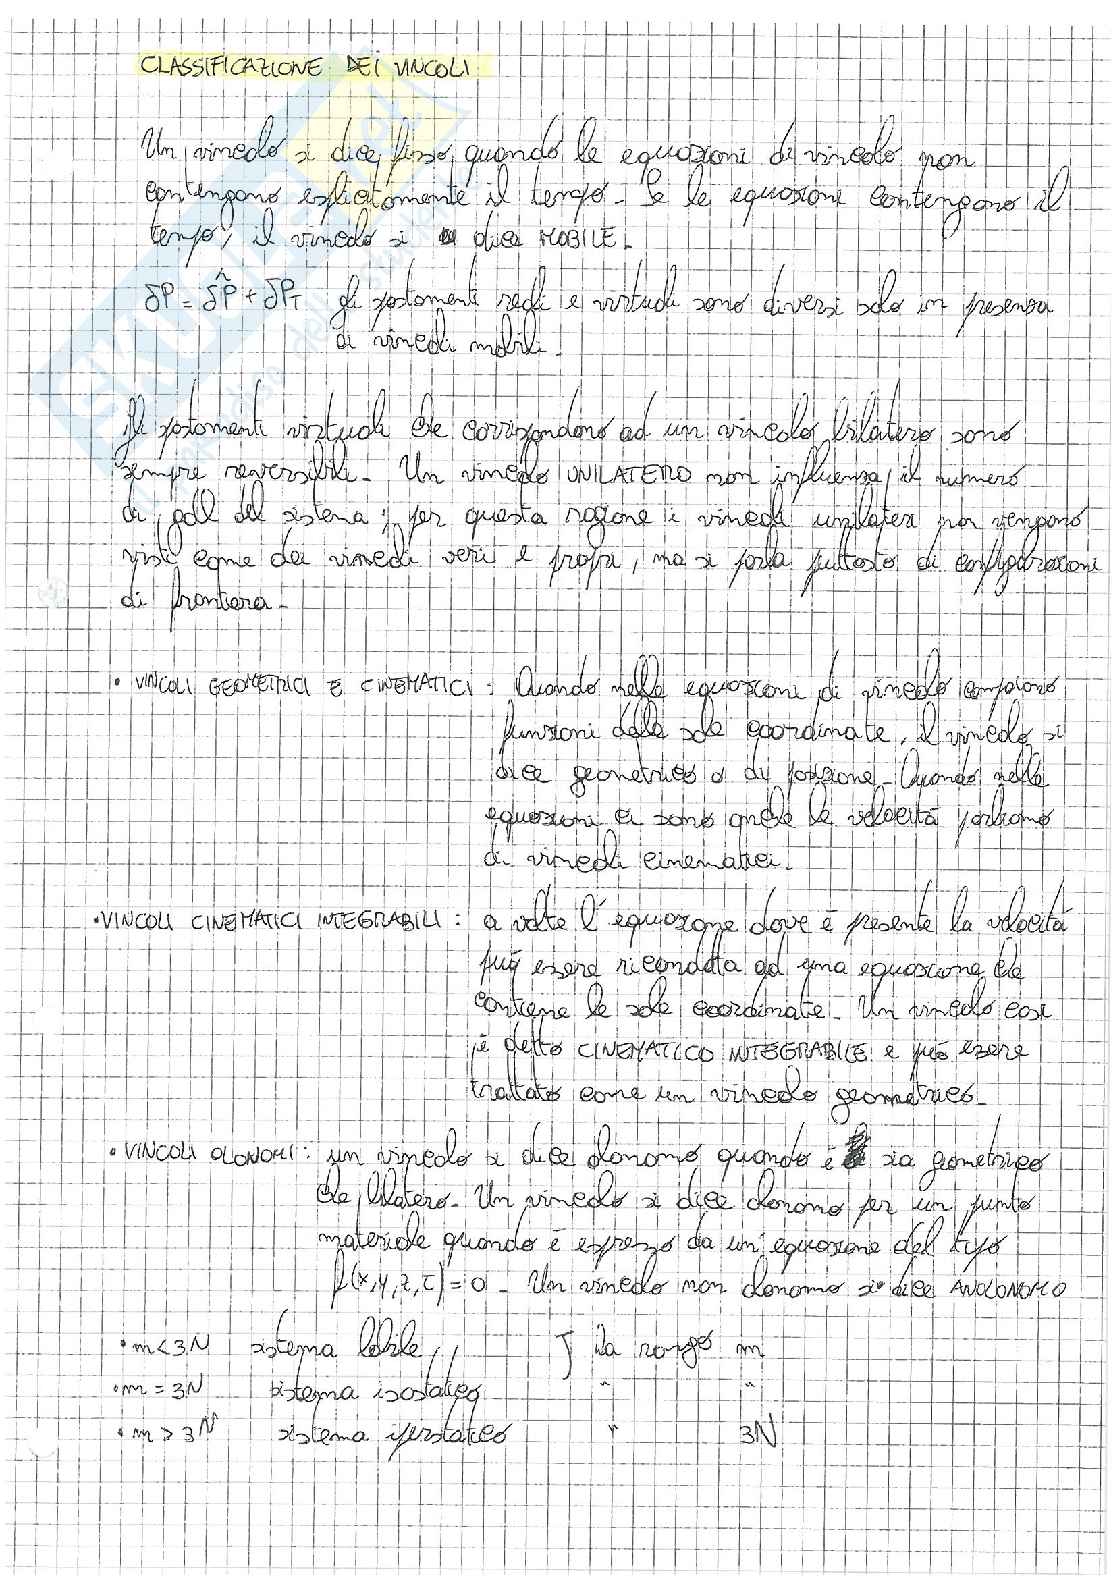 CLASSIFICAZIONE DEI VINCOLI
Un vincolo si dice fisso quando le equazioni di vincolo non
contengono esplicitamente il tempo. Se le equazione contengono il
tempo, il vincolo si dice MOBILE.
δP = δP̂ + δP_T gli spostamenti reali e virtuali sono diversi solo in presenza
di vincoli mobili.
Gli spostamenti virtuali che corrispondono ad un vincolo bilatero sono
sempre reversibili. Un vincolo UNILATERO non influenza il numero
di gdl del sistema; per questa ragione i vincoli unilateri non vengono
visti come dei vincoli veri e propri, ma si parla piuttosto di configurazioni
di frontiera.
• VINCOLI GEOMETRICI E CINEMATICI: Quando nelle equazioni di vincolo compaiono
funzioni delle sole coordinate, il vincolo si
dice geometrico o di posizione. Quando nelle
equazioni ci sono anche le velocità parliamo
di vincoli cinematici.
• VINCOLI CINEMATICI INTEGRABILI: a volte l'equazione dove è presente la velocità
può essere ricondotta ad una equazione che
contiene le sole coordinate. Un vincolo così
è detto CINEMATICO INTEGRABILE e può essere
trattato come un vincolo geometrico.
• VINCOLI OLONOMI: un vincolo si dice olonomo quando è sia geometrico
che bilatero. Un vincolo si dice olonomo per un punto
materiale quando è espresso da un'equazione del tipo
f(x,y,z,t)=0. Un vincolo non olonomo si dice ANOLONOMO
• m < 3N sistema labile, J ha rango m
• m = 3N sistema isostatico " "
• m > 3N sistema iperstatico " 3N